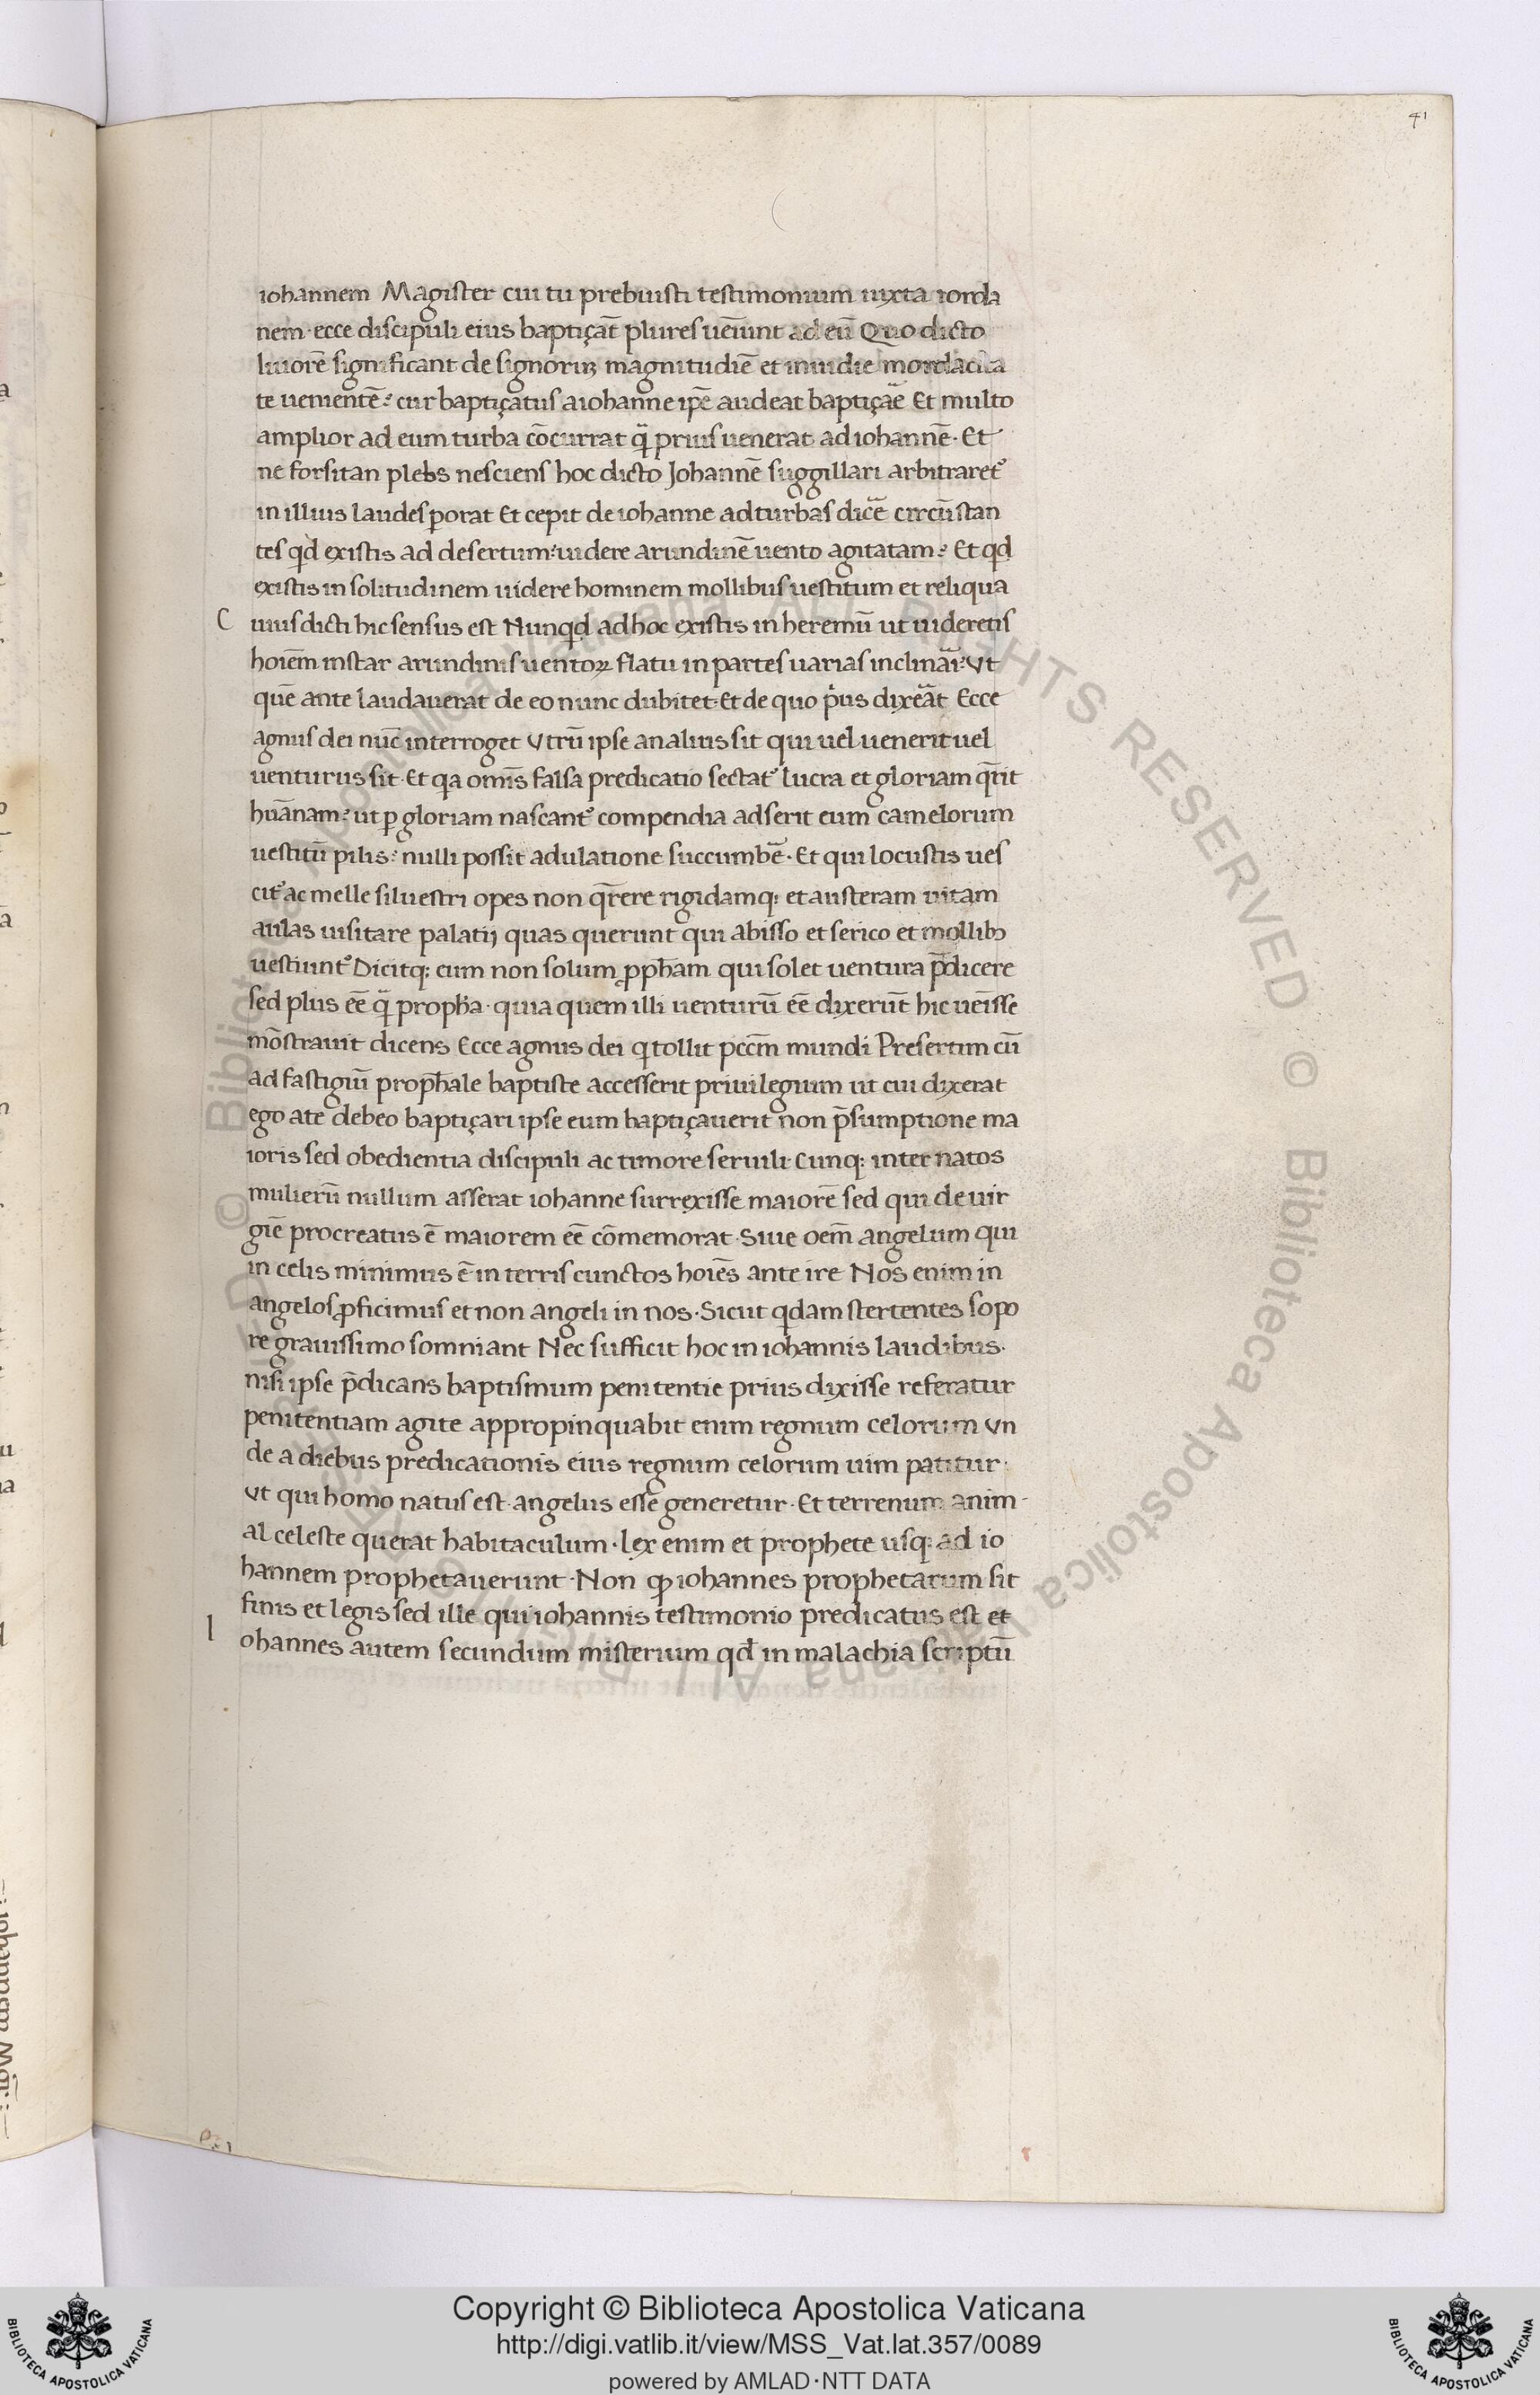 41
iohannem Magister cui tu prebuisti testimonium iuxta iorda
nem · ecce discipuli eius baptiçãt plures ueĩunt ad eũ Quo dicto
liuorẽ significant de signoruꝫ magnitudiẽ et inuidie mordacita
te uenientẽ? cur baptiçatus a iohanne ip̃e audeat baptiçãe Et multo
amplior ad eum turba cõcurrat q̃ prius uenerat ad iohannẽ · Et
ne forsitan plebs nesciens hoc dicto Johannẽ suggillari arbitraret᷒
in illius laudes ꝑorat Et cepit de iohanne ad turbas dicẽ circũstan
tes qd existis ad desertum? uidere arundinẽ uento agitatam? Et qd
existis in solitudinem uidere hominem mollibus uestitum et reliqua
C uius dicti hic sensus est Nunqd ad hoc existis in heremũ ut uideretis
hoiẽm instar arundinis uentoꝝ flatu in partes uarias inclinãi? Vt
quẽ ante laudauerat de eo nunc dubitet · Et de quo p̃us dixeãt Ecce
agnus dei nũc interroget Vtrũ ipse an alius sit qui uel uenerit uel
uenturus sit · Et qa omĩs falsa predicatio sectat᷒ lucra et gloriam q̃rit
huãnam? ut ꝑ gloriam nascant᷒ compendia adserit eum camelorum
uestitũ pilis? nulli possit adulatione succumbẽ · Et qui locustis ues
cit᷒ ac melle siluestri opes non q̃rere rigidamq; et austeram uitam
aulas uisitare palatij quas querunt qui abisso et serico et mollibꝫ
uestiunt᷒ Dicitq; eum non solum ꝓpham̃ qui solet uentura p̃dicere
sed plus eẽ q̃ proph̃a · quia quem illi uenturũ eẽ dixerũt hic ueĩsse
mõstrauit dicens Ecce agnus dei q tollit pccm̃ mundi Presertim cũ
ad fastigiũ proph̃ale baptiste accesserit priuilegium ut cui dixerat
ego a te debeo baptiçari ipse eum baptiçauerit non p̃sumptione ma
ioris sed obedientia discipuli ac timore seruili · Cunq; inter natos
mulierũ nullum asserat iohanne surrexisse maiorẽ sed qui de uir
giẽ procreatus ẽ maiorem eẽ cõmemorat · Siue oem̃ angelum qui
in celis minimus ẽ in terris cunctos hoiẽs ante ire Nos enim in
angelos ꝓficimus et non angeli in nos · Sicut qdam stertentes sopo
re grauissimo somniant Nec sufficit hoc in iohannis laudibus ·
nisi ipse p̃dicans baptismum penitentie prius dixisse referatur
penitentiam agite appropinquabit enim regnum celorum Vn
de a diebus predicationis eius regnum celorum uim patitur ·
Vt qui homo natus est · angelus esse generetur · Et terrenum anim-
al celeste querat habitaculum · Lex enim et prophete usq; ad io
hannem prophetauerunt · Non ꝙ iohannes prophetarum sit
finis et legis sed ille qui iohannis testimonio predicatus est et
I ohannes autem secundum misterium qd̃ in malachia scriptũ
© Biblioteca Apostolica Vaticana ALL RIGHTS RESERVED
Copyright © Biblioteca Apostolica Vaticana
http://digi.vatlib.it/view/MSS_Vat.lat.357/0089
powered by AMLAD·NTT DATA
BIBLIOTECA APOSTOLICA VATICANA
BIBLIOTECA APOSTOLICA VATICANA